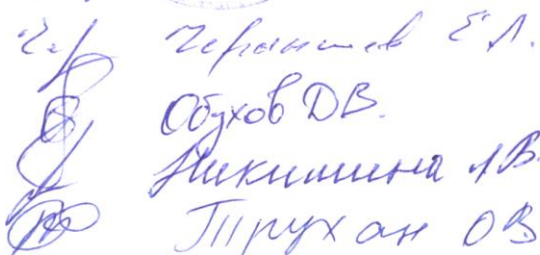 Чернышев Е Л.
Обухов ДВ.
Никишина Л В.
Трухан О В